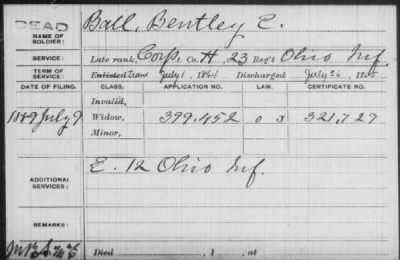 DEAD
NAME OF SOLDIER: Ball, Bentley C.
SERVICE: Late rank, Corp., Co. H, 23 Reg't Ohio Inf.
TERM OF SERVICE: Enlisted from July 1, 1864 Discharged July 26, 1865
DATE OF FILING. CLASS. APPLICATION NO. LAW. CERTIFICATE NO.
Invalid,
1889 July 9 Widow, 399.452 321,727
Minor,
ADDITIONAL SERVICES: E. 12 Ohio Inf.
REMARKS:
Died , 1 , at